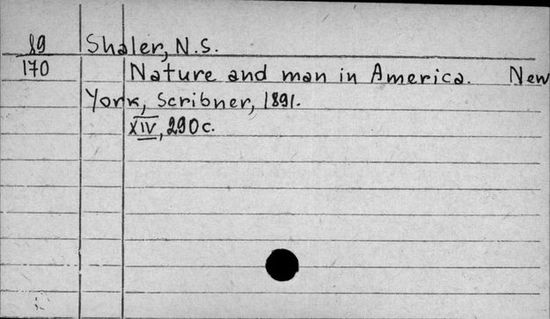 89
170
Shaler, N.S.
Nature and man in America. New
York, Scribner, 1891.
XIV, 290c.